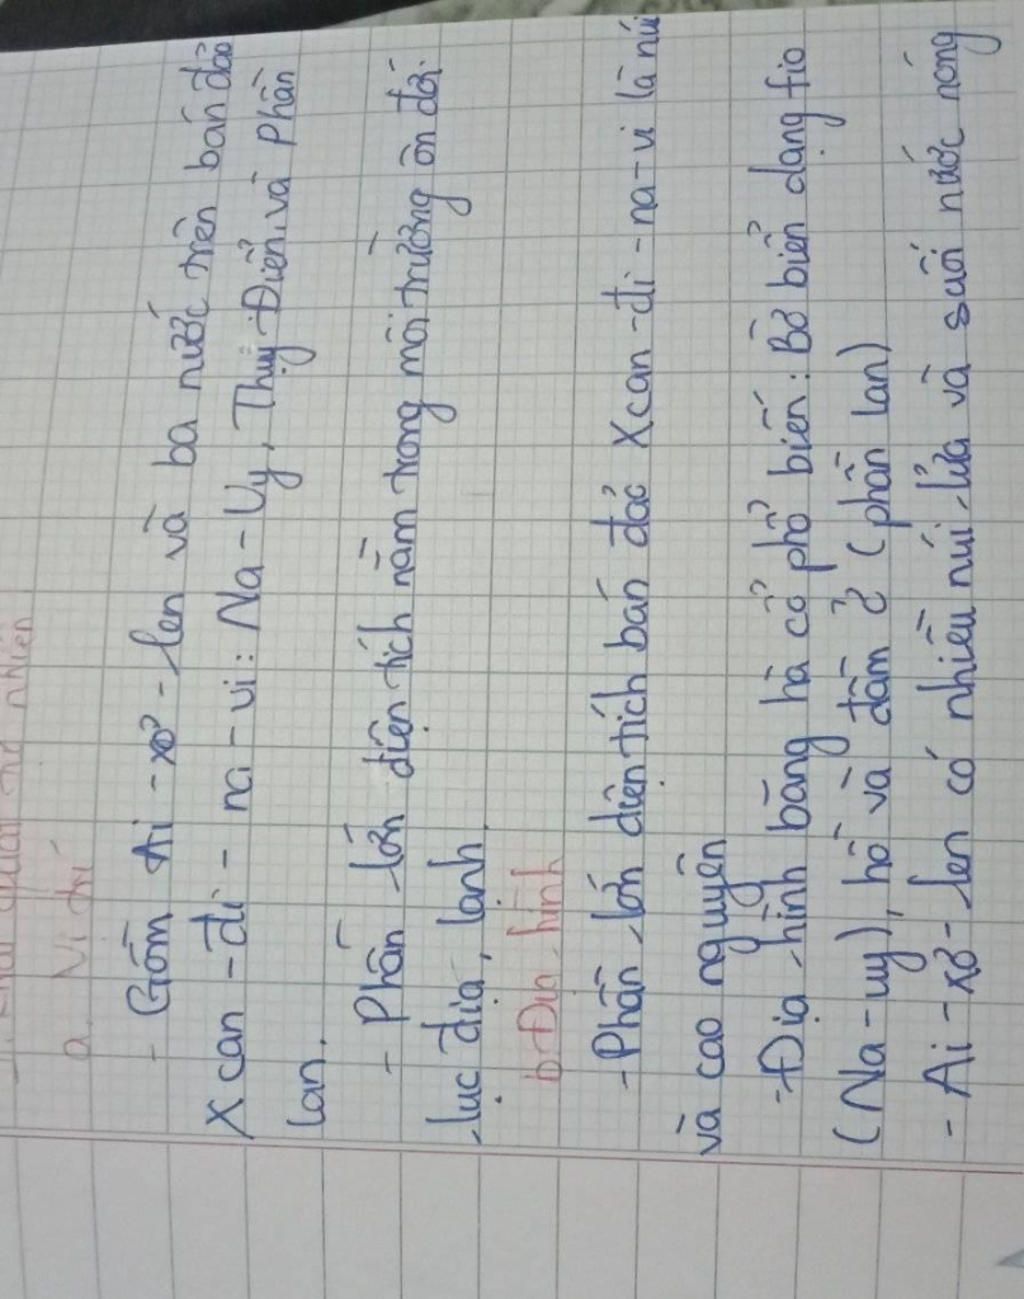 1. Khái quát tự nhiên
a. Vị trí
- Gồm Ai-xơ-len và ba nước trên bán đảo
Xcan-đi-na-vi: Na-Uy, Thụy Điển, và Phần
lan.
- Phần lớn diện tích nằm trong môi trường ôn đới
lục địa, lạnh.
b. Địa hình
- Phần lớn diện tích bán đảo Xcan-đi-na-vi là núi
và cao nguyên
- Địa hình băng hà cổ phổ biến: Bờ biển dạng fio
(Na-uy), hồ và đầm ở (phần lan)
- Ai-xơ-len có nhiều núi lửa và suối nước nóng